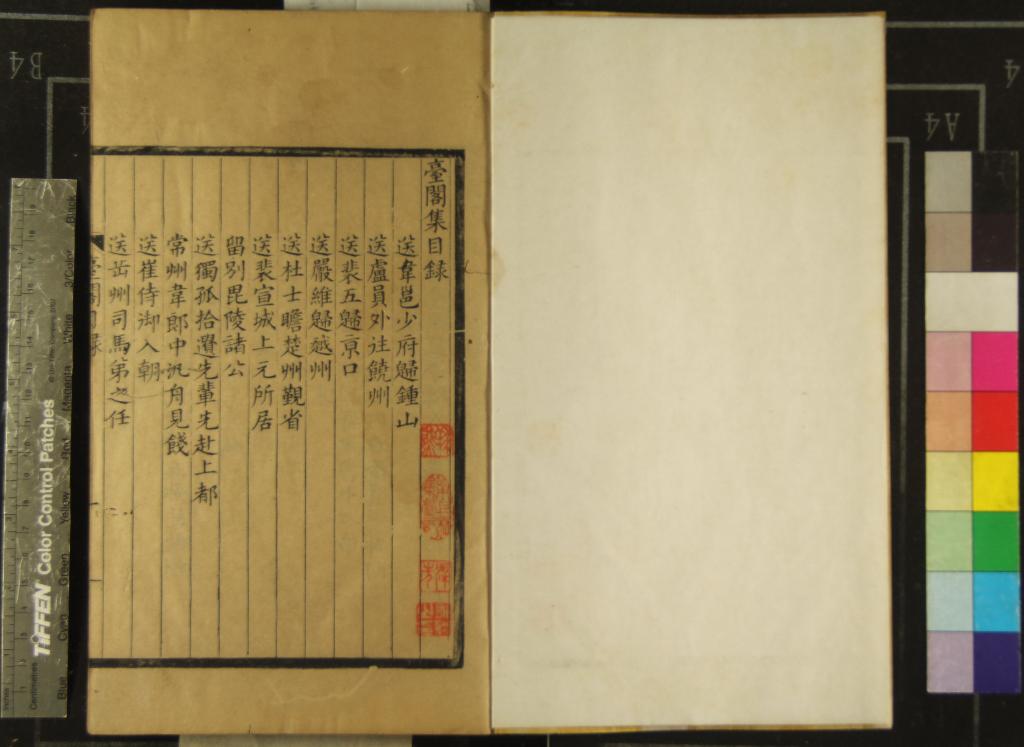 臺閣集目錄
送韋邕少府歸鍾山
送盧員外往饒州
送裴五歸京口
送嚴維歸越州
送杜士瞻楚州覲省
送裴宣城上元所居
留別毘陵諸公
送獨孤拾遺先輩先赴上都
常州韋郎中汎舟見餞
送崔侍御入朝
送岳州司馬弟之任
臺閣目錄
TIFFEN Color Control Patches
Blue
Cyan
Green
Yellow
Red
Magenta
White
3/Color
Black
Inches
Centimetres
B4
A4